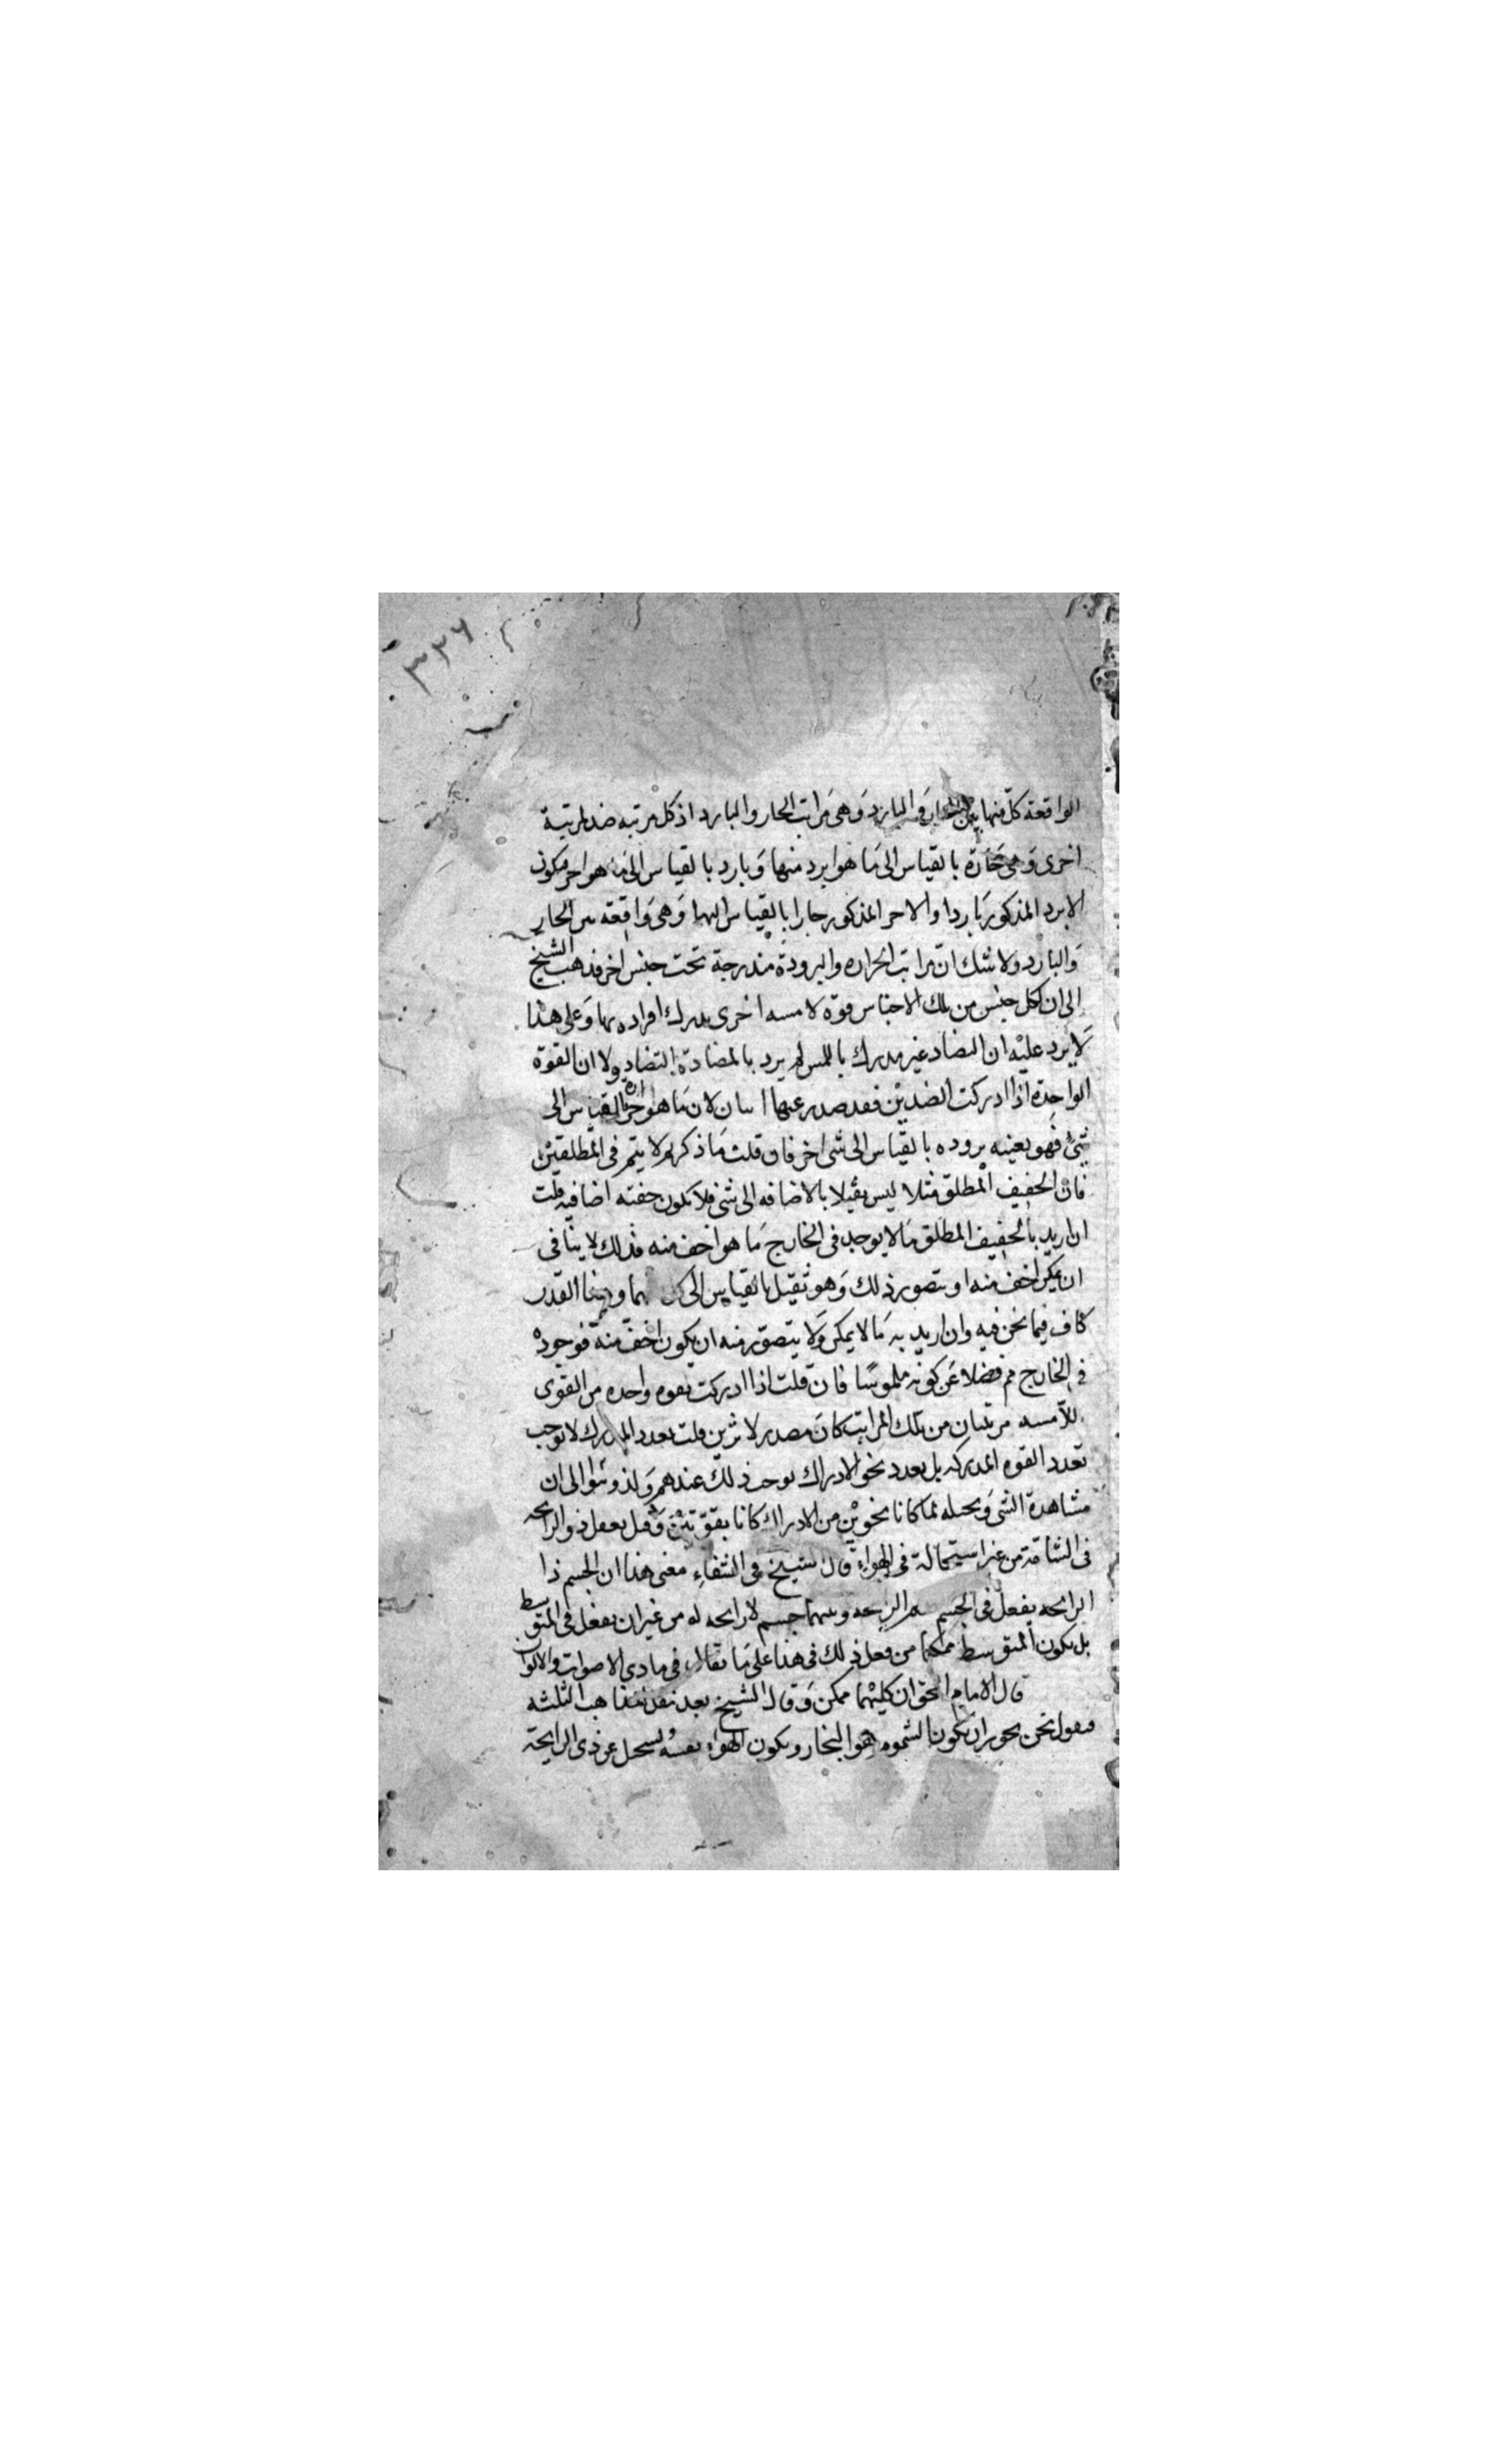 ٣٢٦
الواقعة كل منها بين الحار والبارد وهى مراتب الحار والبارد اذ كل مرتبه ضد لمرتبة
اخرى وهى حارة بالقياس الى ما هو ابرد منها وبارد بالقياس الى ما هو احر فيكون
الابرد المذكور باردا والاحر المذكور حارا بالقياس اليها وهى واقعة بين الحار
والبارد ولا شك ان مراتب الحراره والبرودة مندرجة تحت جنس اخر فذهب الشيخ
الى ان لكل جنس من تلك الاجناس قوة لامسه اخرى يدرك افراده بها وعلى هذا
لا يرد عليه ان التضاد غير مدرك باللمس لم يرد بالمضادة التضاد ولا ان القوة
الواحدة اذا ادركت الضدين فقد صدر عنها اثنان لان ما هو حرارة بالقياس الى
شئ فهو بعينه بروده بالقياس الى شى اخر فان قلت ما ذكرتم لا يتم فى المطلقين
فان الخفيف المطلق مثلا ليس ثقيلا بالاضافه الى شئ فلا تكون خفته اضافيه قلت
ان اريد بالخفيف المطلق ما لا يوجد فى الخارج ما هو اخف منه فذلك لا ينافى
ان يمكن اخف منه او يتصور ذلك وهو ثقيل بالقياس الى كل منهما وهذا القدر
كاف فيما نحن فيه وان اريد به ما لا يمكن ولا يتصور منه ان يكون اخف منه فوجوده
فى الخارج مم فضلا عن كونه ملموسا فان قلت اذا ادركت بقوه واحده من القوى
اللامسه مرتبتان من تلك المراتب كان مصدر لاثرين قلت تعدد المدرك لا يوجب
تعدد القوه المدركه بل تعدد نحو الادراك يوجب ذلك عندهم ولذا ذهبوا الى ان
مشاهدة الشى وتخيله لما كانا نحوين من الادراك كانا بقوتين وقيل بفعل ذو الرايحه
فى الشامة من غير استحالة فى الهواء قال الشيخ فى الشفاء معنى هذا ان الجسم ذا
الرايحه يفعل فى الجسم الرايحه وبينهما جسم لا رايحه له من غير ان يفعل فى المتوسط
بل يكون المتوسط ممكنا من فعل ذلك فى هذا على ما يقال فى مادى الاصوات والالوان
قال الامام الحق ان كليهما ممكن وقال الشيخ بعد نقل المذاهب الثلثه
فنقول نحن يجوز ان يكون المشموم هو البخار ويكون الهواء نفسه يستحيل عن ذى الرايحة